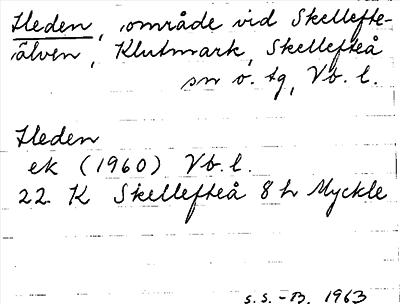 Heden, område vid Skellefte-
älven, Klutmark, Skellefteå
sn o. tg, Vb. l.
Heden
ek (1960) Vb. l.
22 K Skellefteå 8 h Myckle
S.S.-B. 1963